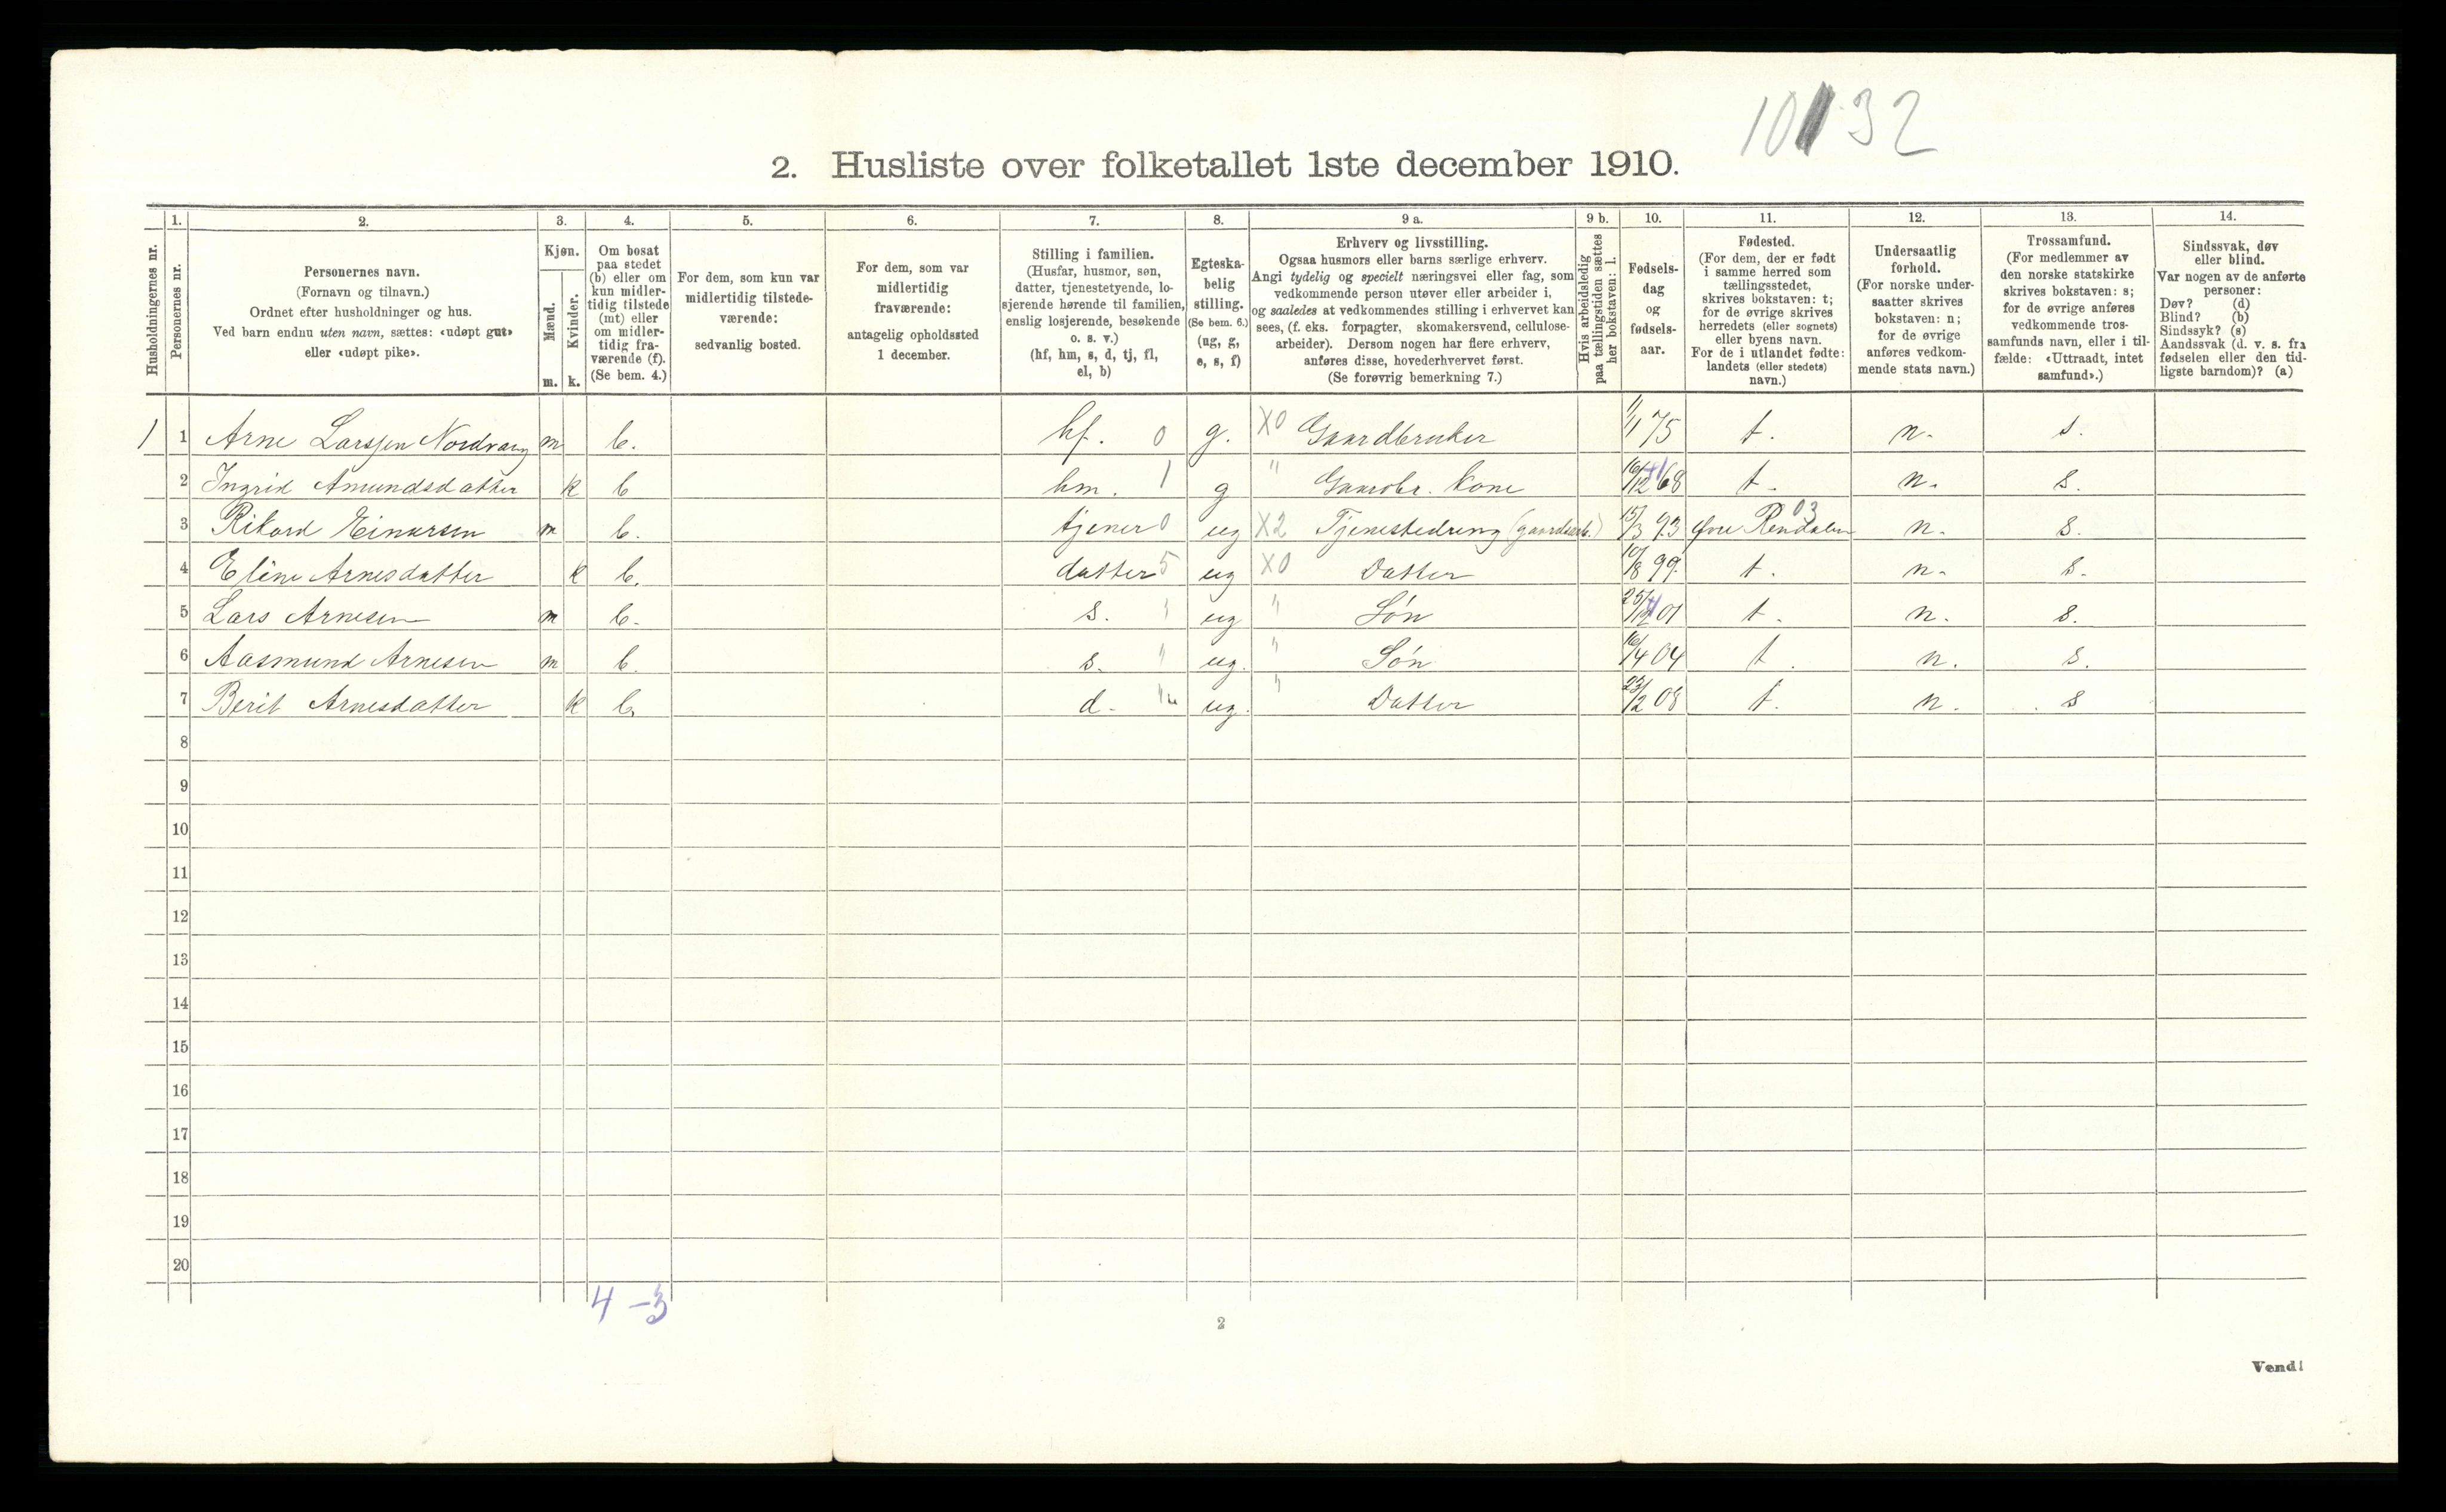 10 32
2. Husliste over folketallet 1ste december 1910.
1. 2. 3. 4. 5. 6. 7. 8. 9 a. 9 b. 10. 11. 12. 13. 14.
Husholdningernes nr.
Personernes nr.
Personernes navn.
(Fornavn og tilnavn.)
Ordnet efter husholdninger og hus.
Ved barn endnu uten navn, sættes: «udøpt gut»
eller «udøpt pike».
Kjøn.
Mænd.
Kvinder.
m. k.
Om bosat
paa stedet
(b) eller om
kun midler-
tidig tilstede
(mt) eller
om midler-
tidig fra-
værende (f).
(Se bem. 4.)
For dem, som kun var
midlertidig tilstede-
værende:
sedvanlig bosted.
For dem, som var
midlertidig
fraværende:
antagelig opholdssted
1 december.
Stilling i familien.
(Husfar, husmor, søn,
datter, tjenestetyende, lo-
sjerende hørende til familien,
enslig losjerende, besøkende
o. s. v.)
(hf, hm, s, d, tj, fl,
el, b)
Egteska-
belig
stilling.
(Se bem. 6.)
(ug, g,
e, s, f)
Erhverv og livsstilling.
Ogsaa husmors eller barns særlige erhverv.
Angi tydelig og specielt næringsvei eller fag, som
vedkommende person utøver eller arbeider i,
og saaledes at vedkommendes stilling i erhvervet kan
sees, (f. eks. forpagter, skomakersvend, cellulose-
arbeider). Dersom nogen har flere erhverv,
anføres disse, hovederhvervet først.
(Se forøvrig bemerkning 7.)
Hvis arbeidsledig
paa tællingstiden sættes
her bokstaven: l.
Fødsels-
dag
og
fødsels-
aar.
Fødested.
(For dem, der er født
i samme herred som
tællingsstedet,
skrives bokstaven: t;
for de øvrige skrives
herredets (eller sognets)
eller byens navn.
For de i utlandet fødte:
landets (eller stedets)
navn.)
Undersaatlig
forhold.
(For norske under-
saatter skrives
bokstaven: n;
for de øvrige
anføres vedkom-
mende stats navn.)
Trossamfund.
(For medlemmer av
den norske statskirke
skrives bokstaven: s;
for de øvrige anføres
vedkommende tros-
samfunds navn, eller i til-
fælde: «Uttraadt, intet
samfund».)
Sindssvak, døv
eller blind.
Var nogen av de anførte
personer:
Døv? (d)
Blind? (b)
Sindssyk? (s)
Aandssvak (d. v. s. fra
fødselen eller den tid-
ligste barndom)? (a)
1 1 Arne Larssen Nordvang m b. hf. 0 g. X0 Gaardbruker 1/1 75 t. n. s.
2 Ingrid Amundsdatter k b hm. 1 g " Gaardbr. kone 16/12 68 t. n. s.
3 Rikard Einarsen m b. tjener 0 ug X2 Tjenestedreng (gaardsarb.) 15/3 93 Øvre Rendalen 03 n. s.
4 Eline Arnesdatter k b. datter 5 ug X0 Datter 10/8 99. t. n. s.
5 Lars Arnesen m b. s. " ug " Søn 25/12 01 t. n. s.
6 Aasmund Arnesen m b. s. " ug. " Søn 16/4 04 t. n. s.
7 Berit Arnesdatter k b. d. " ug. " Datter 23/2 08 t. n. s
8
9
10
11
12
13
14
15
16
17
18
19
20
4 – 3
2
Vend!